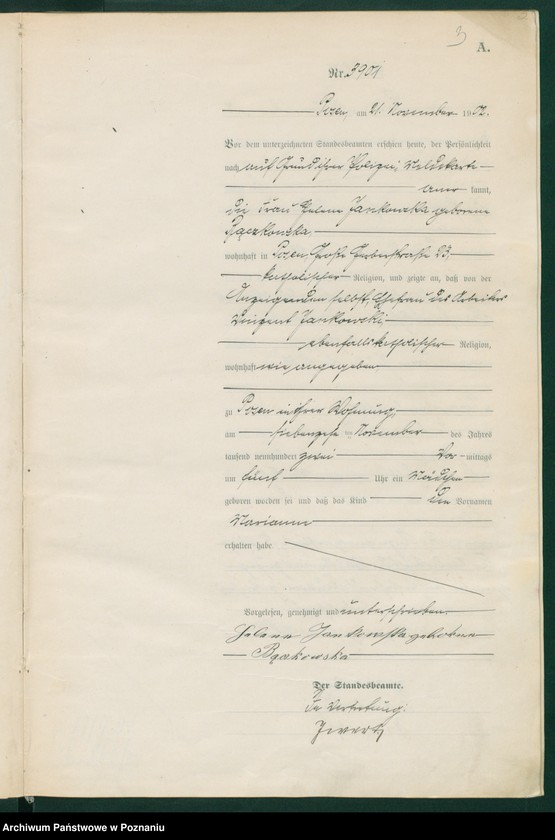 3
A.
Nr. 3901
Posen, am 21. November 1902.
Vor dem unterzeichneten Standesbeamten erschien heute, der Persönlichkeit
nach auf Grund ihrer Polizei-Meldekarte
aner kannt,
die Frau Helene Jankowska geborene
wohnhaft in Posen, Große Gerberstraße 23,
katholischer Religion, und zeigte an, daß von der
Anzeigenden selbst, Ehefrau des Arbeiters
Vinzent Jankowski,
ebenfalls katholischer Religion,
wohnhaft wie angegeben
zu Posen in ihrer Wohnung
am siebenzehn ten November des Jahres
tausend neunhundert zwei Vor mittags
um fünf Uhr ein Mädchen
geboren worden sei und daß das Kind den Vornamen
Marianna
erhalten habe
Vorgelesen, genehmigt und unterschrieben
Helene Jankowska geborene
Der Standesbeamte.
In Vertretung:
Archiwum Państwowe w Poznaniu